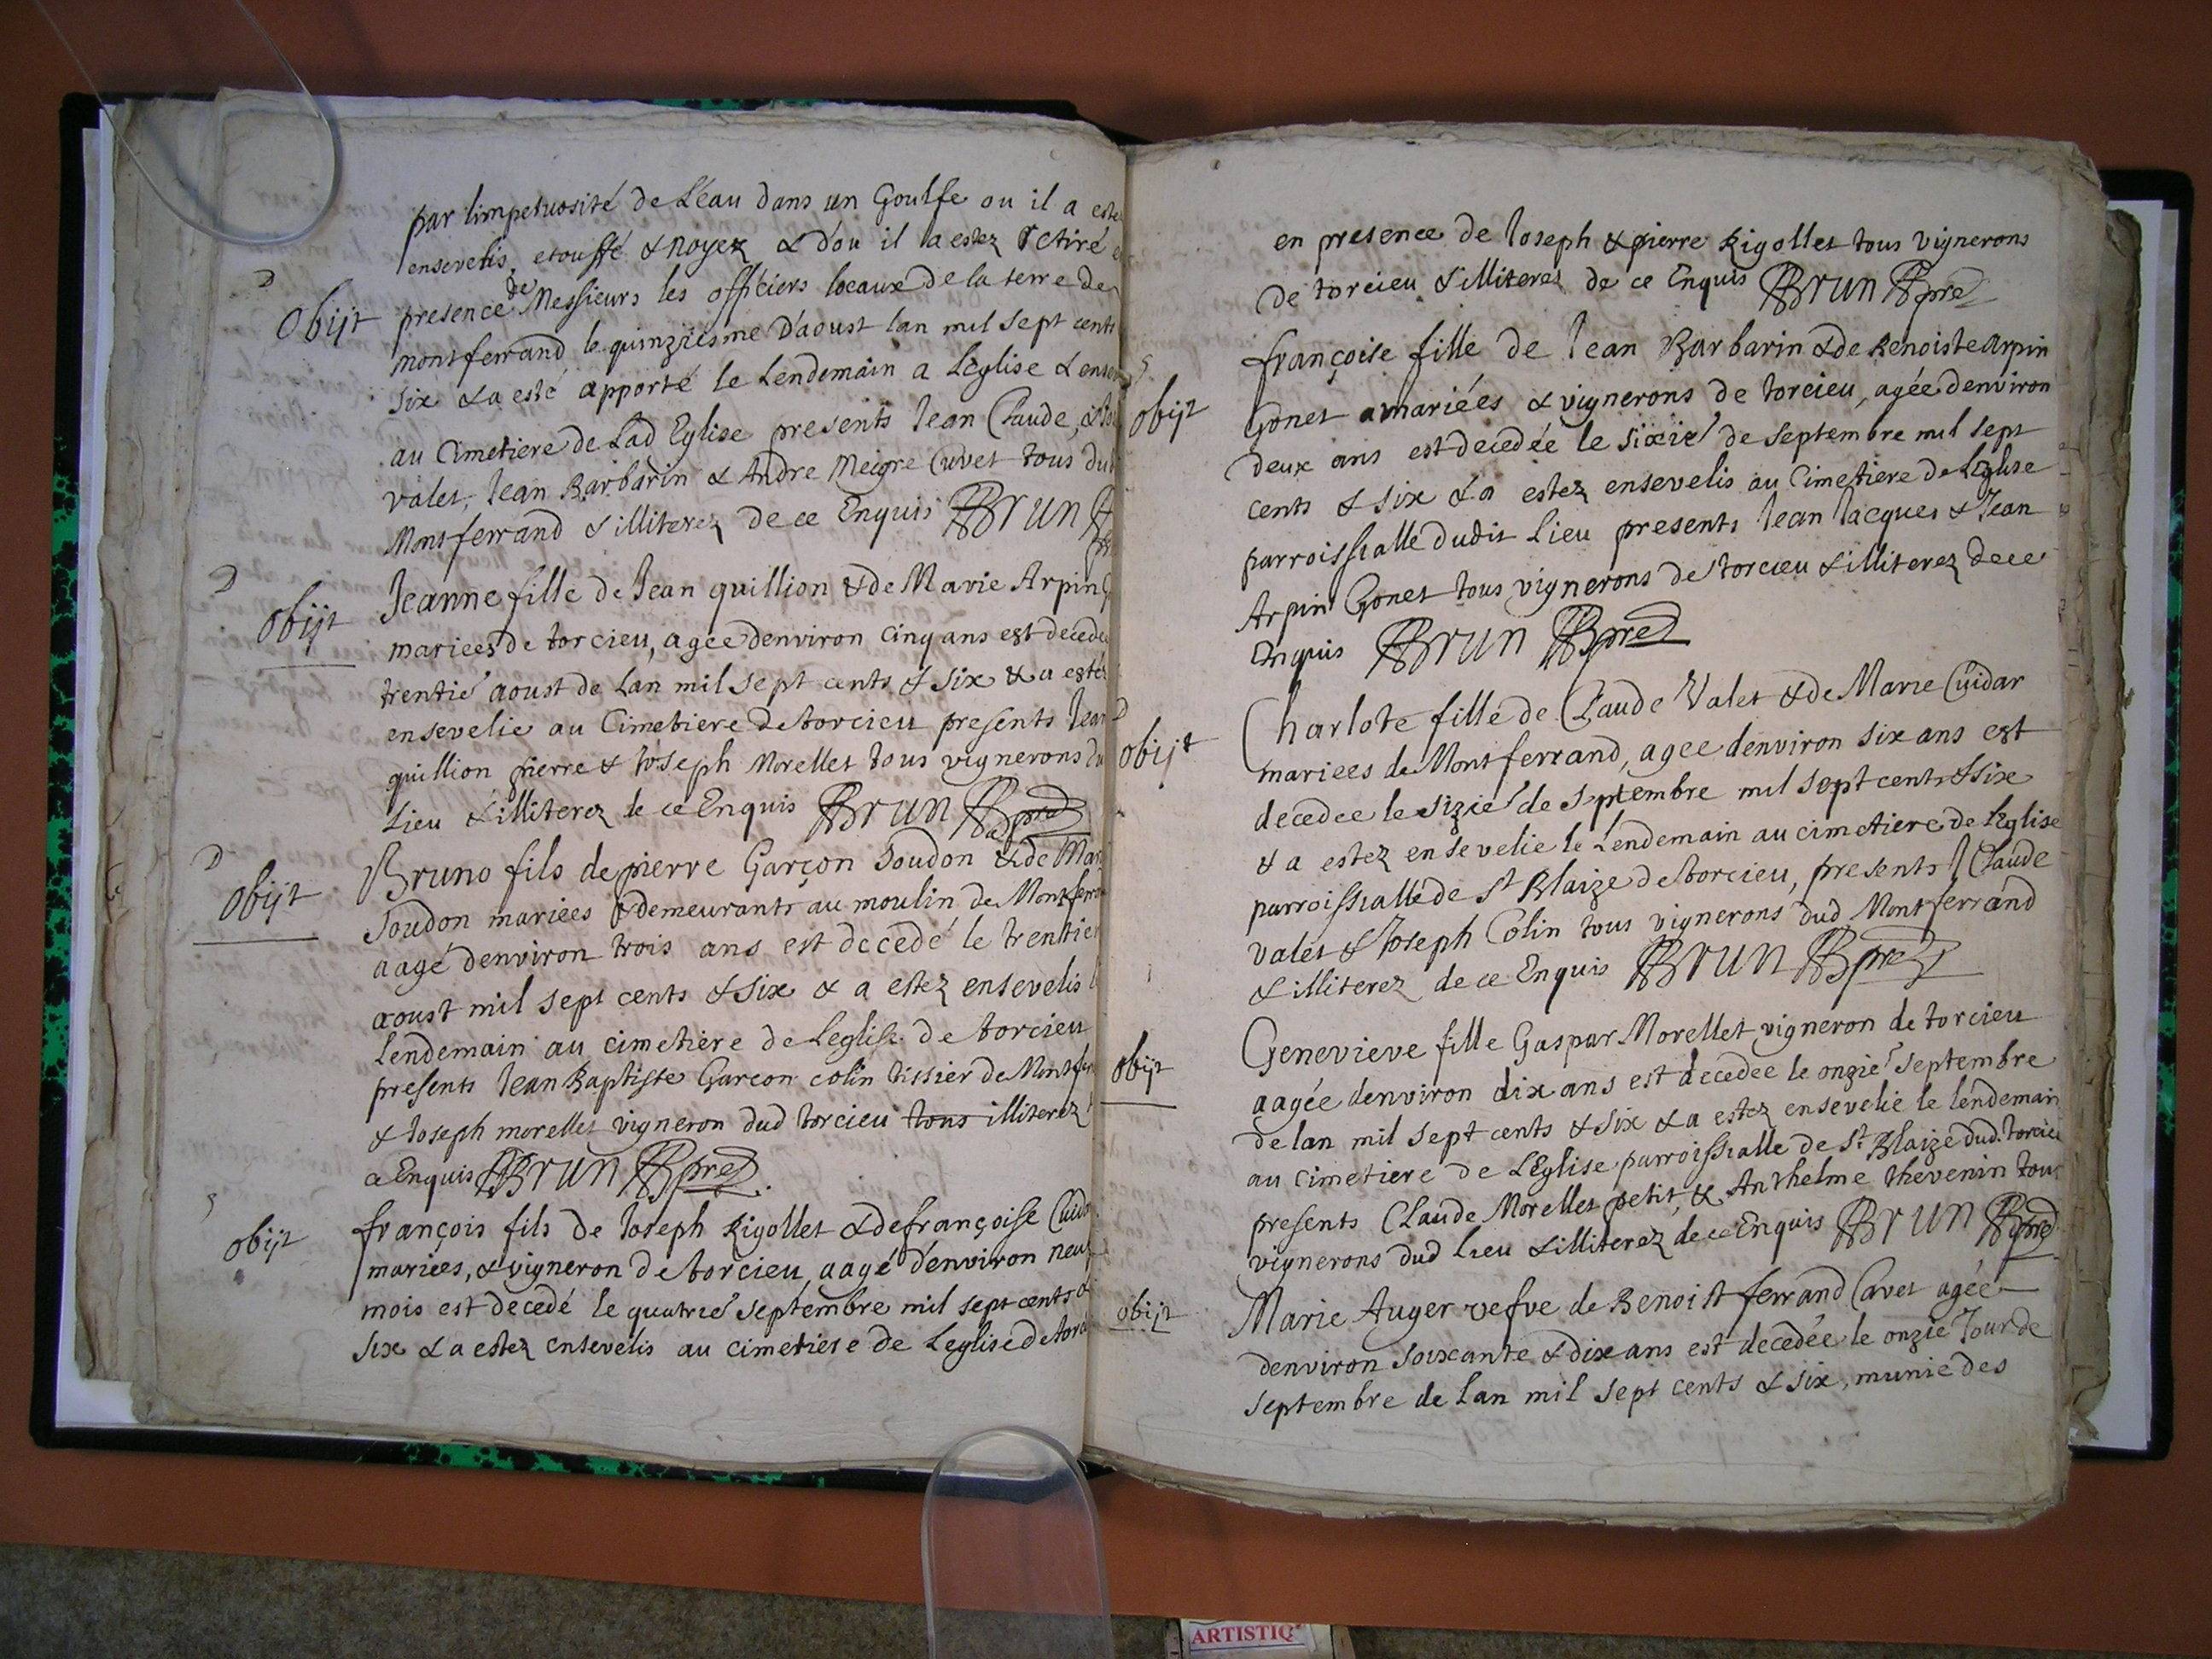 par limpetuosité de L'éau dans un Goulfe ou il a este
ensevelis, etouffé & noyez & d'ou il la estez retiré
obijt
presence de Messieurs les officiers locaux de la terre de
montferrand le quinziesme D'aoust lan mil sept cents
six & a esté apporté le Lendemain a Léglise &
au Cimetiere de Lad Eglise presents Jean Claude,
valet, Jean Barbarin & Andre Meigre Cuvet tous du
Montferrand & illiterez de ce Enquis BRUN
obijt
Jeanne fille de Jean quillion & de Marie Arpin
mariees de torcieu, agée denviron cinq ans est decedee
trentie aoust de Lan mil sept cents & six & a estéz
ensevelie au Cimetiere de torcieu presents Jean
quillion pierre & Joseph Morellet tous vignerons du
Lieu & illiterez de ce Enquis BRUN pre
obijt
Bruno fils de pierre Garçon Soudon & de
Soudon mariees & demeurants au moulin de Montferrand
aagé denviron trois ans est decedé le trentie
aoust mil sept cents & six & a estez ensevelis
Lendemain au cimetiere de Leglise de torcieu
presents Jean Baptiste Garcon colin tissier de
& Joseph morellet vigneron dud torcieu tous illiterez
ce Enquis BRUN pre
obijt
françois fils de Joseph Rigollet & de françoise
mariees, & vigneron de torcieu, aagé d'environ neuf
mois est decedé le quatrie septembre mil sept cents &
six & a estez ensevelis au cimetiere de Leglise de
en presence de Joseph & pierre Rigollet tous vignerons
de torcieu & illiterez de ce Enquis BRUN pre
obijt
françoise fille de Jean Barbarin & de Benoiste Arpin
Gonet mariées & vignerons de torcieu, agée denviron
deux ans est decedée le sixie de septembre mil sept
cents & six & a estez ensevelis au Cimetiere de Léglise
parroissialle dudit Lieu presents Jean Jacques & Jean
Arpin Gonet tous vignerons de torcieu & illiterez de ce
Enquis BRUN pre
obijt
Charlote fille de Claude Valet & de Marie Cuidar
mariees de Montferrand, agee denviron six ans est
decedee le sizie de septembre mil sept cents & six
& a estez ensevelie le Lendemain au cimetiere de l'Eglise
parroissialle de st Blaize de torcieu, presents Claude
valet & Joseph Colin tous vignerons dud Montferrand
& illiterez de ce Enquis BRUN pre
obijt
Genevieve fille Gaspar Morellet vigneron de torcieu
aagée denviron dix ans est decedee le onzie septembre
de lan mil sept cents & six & a estez ensevelie le lendemain
au cimetiere de L'Eglise parroissialle de st Blaize dud. torcieu
presents Claude Morellet petit, & Anthelme thevenin tous
vignerons dud Lieu & illiterez de ce Enquis BRUN pre
obijt
Marie Auger vefve de Benoist ferrand Cavet agée
denviron soixante & dix ans est decedée le onzie Jour de
septembre de lan mil sept cents & six, munie des
ARTISTIQ